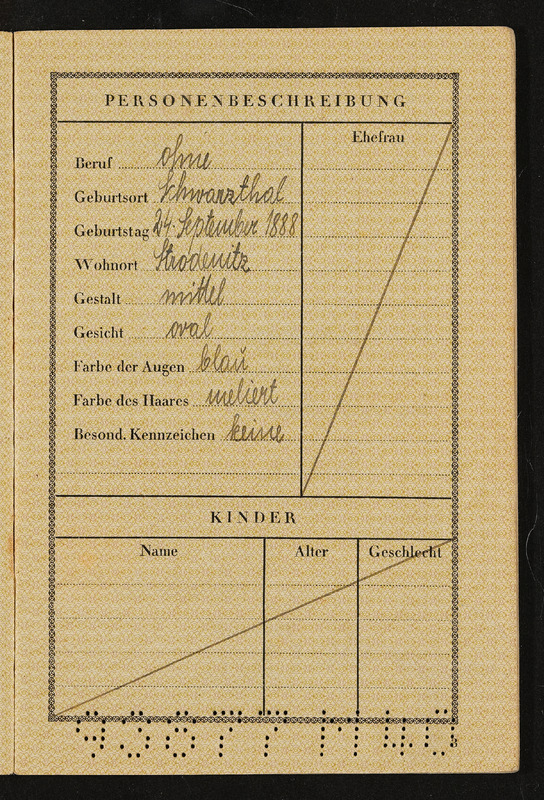 PERSONENBESCHREIBUNG
Ehefrau
Beruf ohne
Geburtsort Schwarzthal
Geburtstag 24. September 1888
Wohnort Strodenitz
Gestalt mittel
Gesicht oval
Farbe der Augen blau
Farbe des Haares meliert
Besond. Kennzeichen keine
KINDER
Name Alter Geschlecht
3